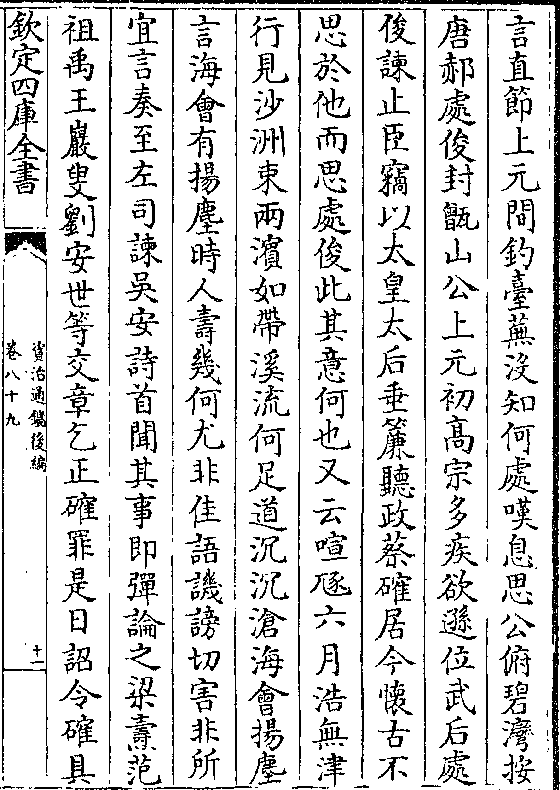 言直節上元間釣臺蕪没知何處嘆息思公俯碧灣按
唐郝處俊封甑山公上元初髙宗多疾欲遜位武后處
俊諫止臣竊以太皇太后垂簾聽政蔡確居今懐古不
思於他而思處俊此其意何也又云喧豗六月浩無津
行見沙洲束兩濱如帶溪流何足道沉沉滄海會揚塵
言海會有揚塵時人壽幾何尤非佳語譏謗切害非所
宜言奏至左司諫吳安詩首聞其事即彈論之梁燾范
祖禹王巖叟劉安世等交章乞正確罪是日詔令確具
欽定四庫全書
資治通鑑後編
卷八十九
十一